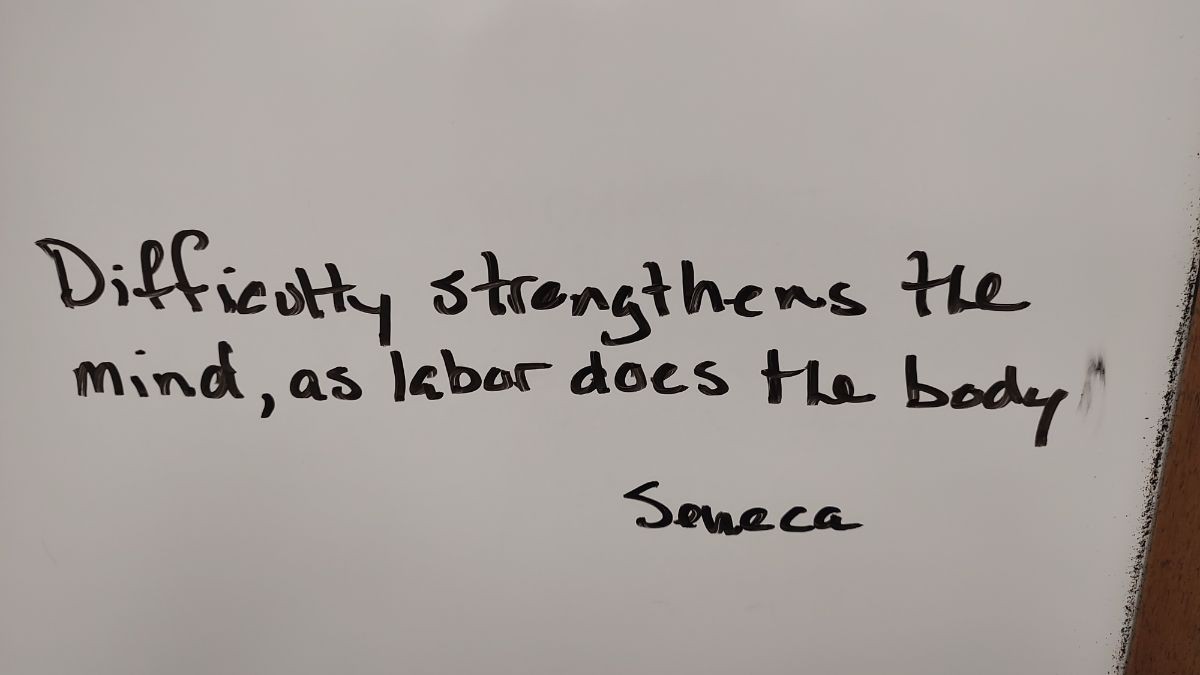 Difficulty strengthens the
mind, as labor does the body"
Seneca